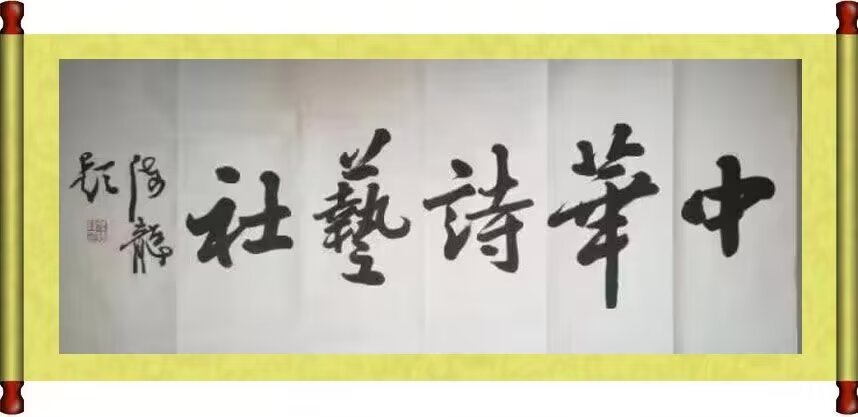 中華詩藝社
海龍
題